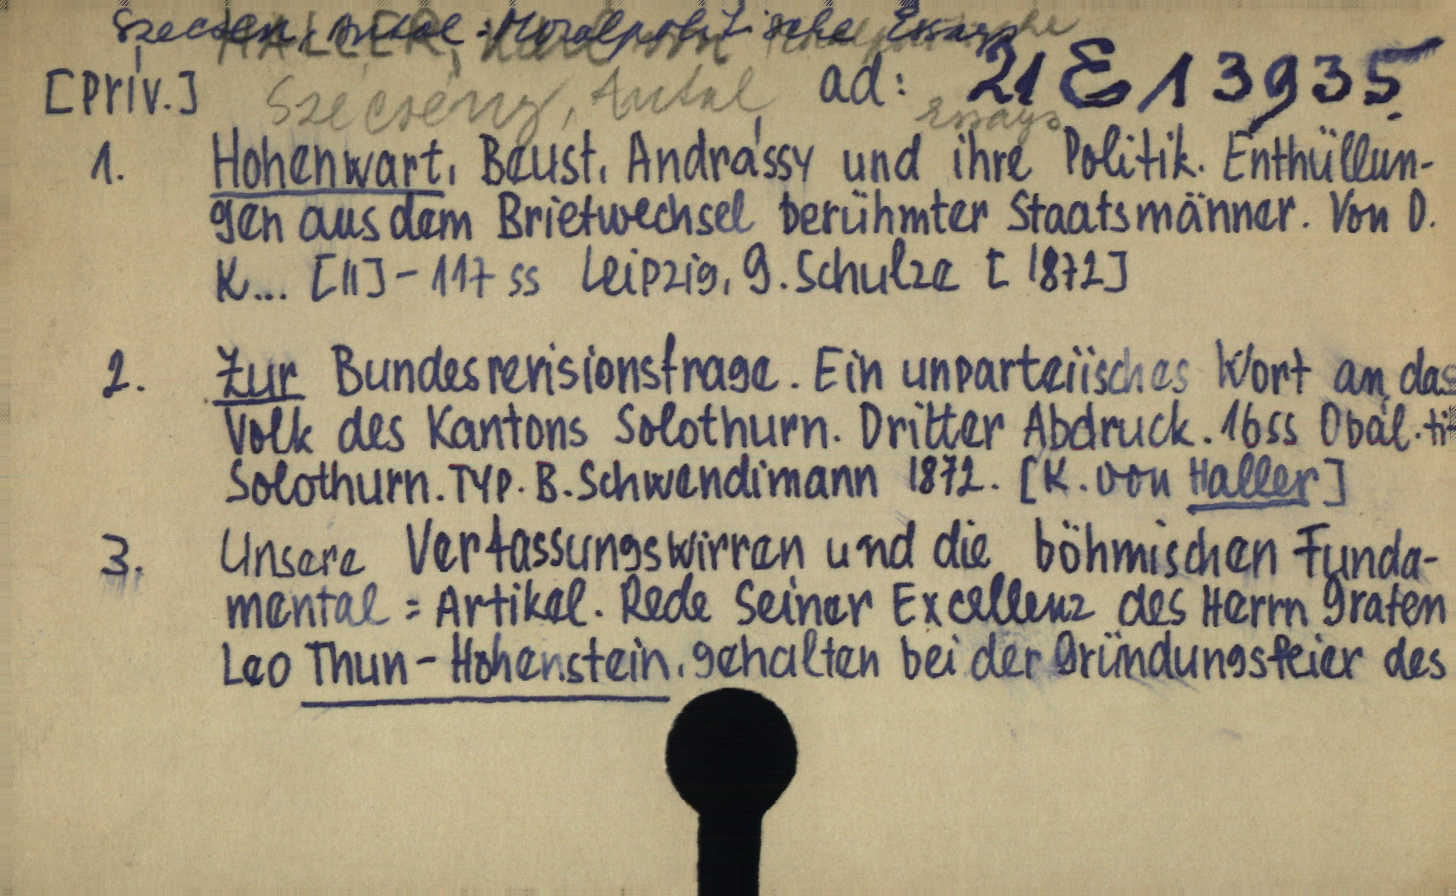 Szécsen, Antal: Moralpolitische Essays
[Priv.] Szécsény, Antal Essays ad: 21 E 13935
1. Hohenwart, Beust, Andrássy und ihre Politik. Enthüllun-
gen aus dem Briefwechsel berühmter Staatsmänner. Von D.
K... [II] - 117 ss Leipzig, G. Schulze [1872]
2. Zur Bundesrevisionsfrage. Ein unparteiisches Wort an das
Volk des Kantons Solothurn. Dritter Abdruck. 16 ss Obál. tit
Solothurn. Typ. B. Schwendimann 1872. [K. von Haller]
3. Unsere Verfassungswirren und die böhmischen Funda-
mental = Artikel. Rede Seiner Excellenz des Herrn Grafen
Leo Thun - Hohenstein, gehalten bei der Gründungsfeier des